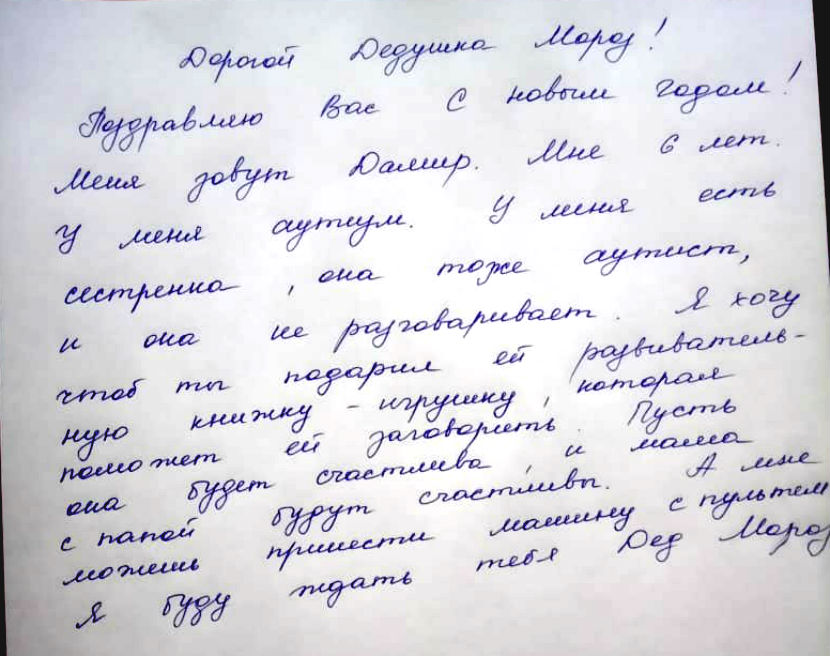 Дорогой Дедушка Мороз!
Поздравляю Вас С новым годом!
Меня зовут Дамир. Мне 6 лет.
У меня аутизм. У меня есть
сестренка, она тоже аутист,
и она не разговаривает. Я хочу
чтоб ты подарил ей развиватель-
ную книжку - игрушку, которая
поможет ей заговорить. Пусть
она будет счастлива, и мама
с папой будут счастливы. А мне
можешь принести машину с пультем
Я буду ждать тебя Дед Мороз